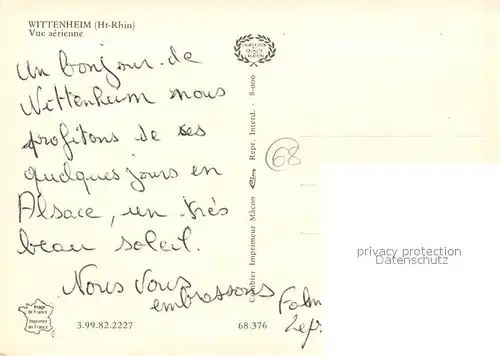 WITTENHEIM (Ht-Rhin)
Vue aérienne
Un bonjour de
Wittenheim nous
profitons de ces
quelques jours en
Alsace, un très
beau soleil.
Nous vous
embrassons
Combier Imprimeur Mâcon Repr. Interd. - 8-000
68
privacy protection
Datenschutz
Image
de France
Imprimée
en France
3.99.82.2227
68.376